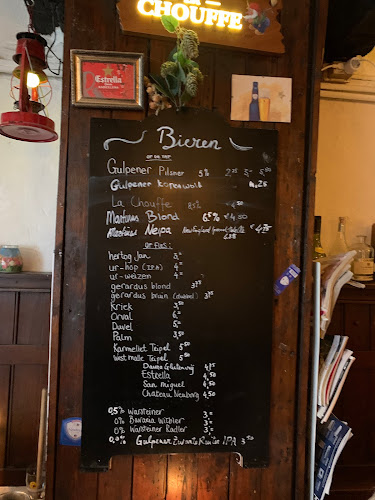 CHOUFFE
Estrella
BARCELONA
Bieren
OP DE TAP
Gulpener Pilsner 5% 2,75 5,- 5,50
Gulpener Korenwolf 4,25
La Chouffe 8% 4,50
Martinus Blond 6,5% € 4,50
Martinus Neipa 6.8% € 4,75
OP FLES:
hertog Jan 3,-
ur-hop (IPA) 4,=
ur-weizen 4,=
gerardus blond 3,75
gerardus bruin (dubbel) 3,75
Kriek 3,50
Orval 6,-
Duvel 5,-
Palm 3,50
Karmeliet Tripel 5,50
Westmalle Tripel 5,50
Daura Glutenvrij 4,75
Estrella 4,50
San miguel 4,50
Chateau Neubourg 4,50
0,5% Warsteiner 3,=
0% Bavaria Witbier 3,=
0% Warsteiner Radler 3,=
0,0% Gulpener IPA 3,50